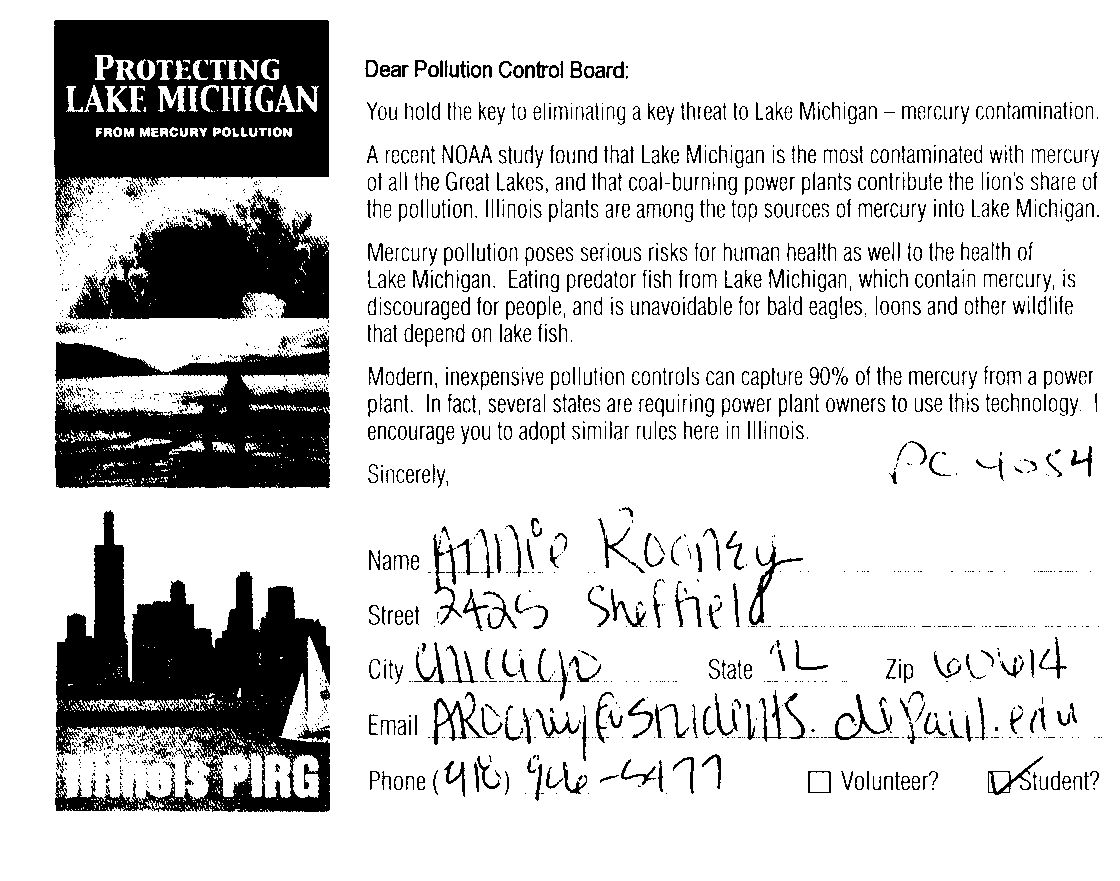 PROTECTING
LAKE MICHIGAN
FROM MERCURY POLLUTION
Illinois PIRG
Dear Pollution Control Board:
You hold the key to eliminating a key threat to Lake Michigan – mercury contamination.
A recent NOAA study found that Lake Michigan is the most contaminated with mercury
of all the Great Lakes, and that coal-burning power plants contribute the lion's share of
the pollution. Illinois plants are among the top sources of mercury into Lake Michigan.
Mercury pollution poses serious risks for human health as well to the health of
Lake Michigan. Eating predator fish from Lake Michigan, which contain mercury, is
discouraged for people, and is unavoidable for bald eagles, loons and other wildlife
that depend on lake fish.
Modern, inexpensive pollution controls can capture 90% of the mercury from a power
plant. In fact, several states are requiring power plant owners to use this technology. I
encourage you to adopt similar rules here in Illinois.
PC 4054
Sincerely,
Name Annie Rooney
Street 2425 Sheffield
City Chicago State IL Zip 60614
Email ARooney@students.depaul.edu
Phone Volunteer? Student?